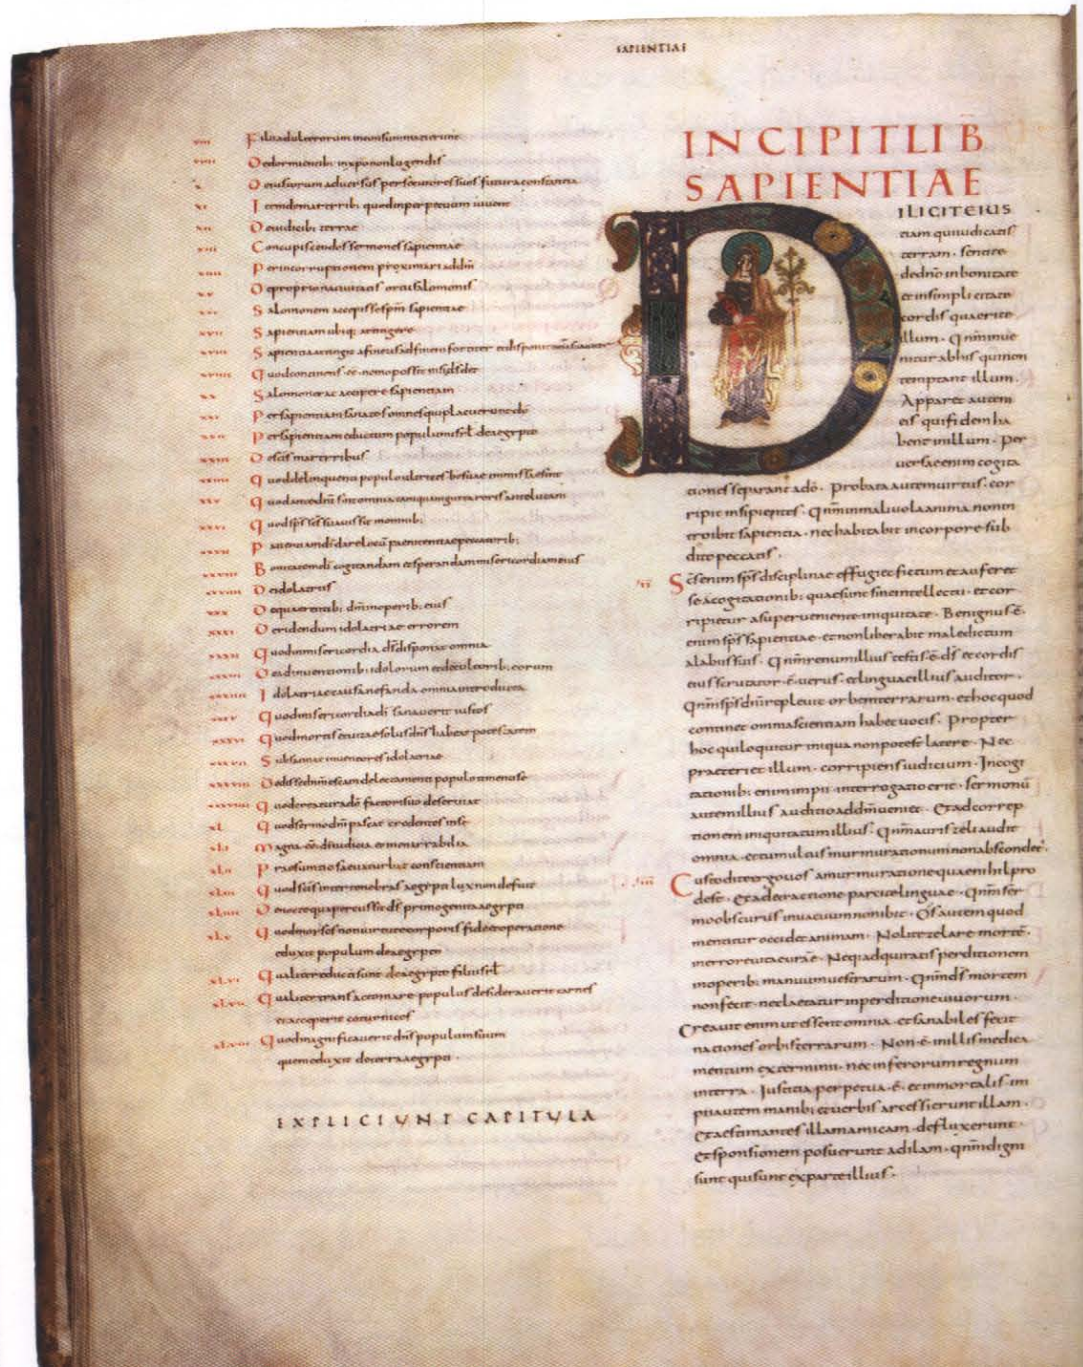 SAPIENTIAE
viii Filii adulterorum inconsummati erunt
viiii De dormientib; in xpo non lugendis
x De iustorum adversus persecutores suos futura constantia
xi Item de martirib; quod in perpetuum vivent
xii De iudicib; terrae
xiii Concupiscendos sermones sapientiae
xiiii Per incorruptionem proximari addm
xv De proprio nativitatis ortu salomonis
xvi Salomonem accepisse spm sapientiae
xvii Sapientiam ubiq; attingere
xviii Sapientia attingit a fine usq; ad finem fortiter et disponit
xviiii Quod continens ee nemo possit nisi ds det
xx Salomon orat accipere sapientiam
xxi Per sapientiam sanatos omnes qui placuerunt do
xxii Per sapientiam eductum populum isrl de aegypto
xxiii De scis martyribus
xxiiii Quod delinquenti populo
xxv Quod ante dm sint omnia tamquam gutta roris antelucani
xxvi Quod sps sci suavis sit in omnib;
xxvii Patientiam di dare locum paenitentiae peccatorib;
xxviii Bonitatem di cogitandam et sperandam misericordiam eius
xxviiii De idolatris
xxx De quaerentib; dm in operib; eius
xxxi Deridendum idolatriae errorem
xxxii Quod misericordia di disponat omnia
xxxiii De adinventionib; idolorum et de cultorib; eorum
xxxiiii Idolatriae causa nefanda omnia introducta
xxxv Quod misericordia di sanaverit iustos
xxxvi Quod mortis et vitae solus dns habeat potestatem
xxxvii Substantiae inventores idolatriae
xxxviii
xxxviiii Quod creatura do factori suo deserviat
xl Quod sermo dni pascat credentes in se
xli Magna ee di iudicia et inenarrabilia
xlii Praesumptio saeva turbat conscientiam
xliii Quod scis inter tenebras aegypti lux non defuit
xliiii De nocte qua percussit ds primogenita aegypti
xlv Quod moyses non virtute corporis fide et operatione
eduxit populum de aegypto
xlvi Qualiter educti sunt de aegypto filii isrl
xlvii Qualiter transacto mare populus desideraverit carnes
et acceperit coturnices
xlviii Quod magnificaverit dns populum suum
quem eduxit de terra aegypti ·
EXPLICIUNT CAPITULA
INCIPIT LIB
SAPIENTIAE
DILIGITE IUS
tiam qui iudicatis
terram · sentite
de dno in bonitate
et in simplicitate
cordis quaerite
illum · Qnm inve
nitur ab his qui non
temptant illum ·
Apparet autem
eis qui fidem ha
bent in illum · Per
versae enim cogita
tiones separant a do · Probata autem virtus · cor
ripit insipientes · Qnm in malivola anima non in
troibit sapientia · nec habitabit in corpore sub
dito peccatis ·
vii Scs enim sps disciplinae effugiet fictum et auferet
se a cogitationib; quae sunt sine intellectu · et cor
ripietur a superveniente iniquitate · Benignus ē
enim sps sapientiae et non liberabit maledictum
a labiis suis · Qnm renum illius testis ē ds et cordis
eius scrutator ē verus · et linguae illius auditor ·
Qnm sps dni replevit orbem terrarum · et hoc quod
continet omnia scientiam habet vocis · Propter
hoc qui loquitur iniqua non potest latere · Nec
praeteriet illum · corripiens iudicium · In cogi
tationib; enim impii · interrogatio erit · sermonū
autem illius auditio ad dm veniet · Et ad correp
tionem iniquitatum illius · Qnm auris zeli audit
omnia · et tumultus murmurationum non abscondet ·
viii Custodite ergo vos a murmuratione quae nihil pro
dest · et a detractione parcite linguae · Qnm ser
mo obscurus in vacuum non ibit · Os autem quod
mentitur occidet animam · Nolite zelare mortē ·
in errore vitae vrae · Neq; adquiratis perditionem
in operib; manuum vestrarum · Qnm ds mortem
non fecit · nec laetatur in perditione vivorum ·
Creavit enim ut essent omnia · et sanabiles fecit
nationes orbis terrarum · Non ē in illis medica
mentum exterminii · nec inferorum regnum
in terra · Iustitia perpetua ē · et inmortalis · im
pii autem manib; et verbis arcessierunt illam ·
Et aestimantes illam amicam · defluxerunt ·
Et sponsionem posuerunt ad illam · qnm digni
sunt qui sunt ex parte illius ·